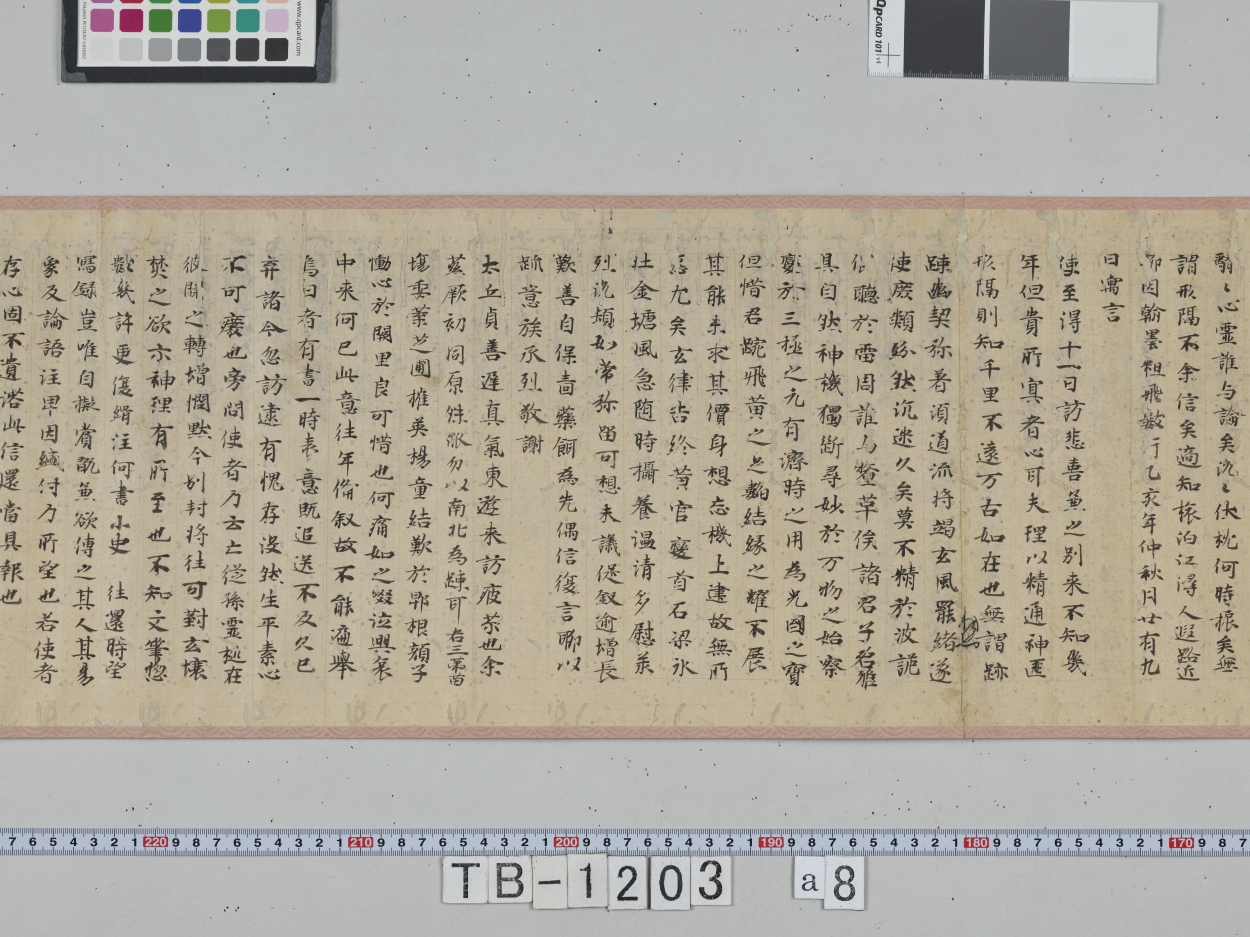 心霊誰与論矣
謂形隔不余信矣適知旅泊江潯人遐路近
因翰墨粗飛數行乙亥年仲秋月廿有九
日寓言
使至得十一日訪悲喜兼之別来不知幾
年但貴所寘者心耳夫理以精通神遝
形隔則知千里不遠万古如在也無謂跡
踈幽契弥著須道流将竭玄風罷緒遂
使庶類紛然沉迷久矣莫不精於波詭
聴於雷同誰
具自然神機獨断尋妙於万物之始察
變於三極之元有濟時之用為光國之寶
但惜君蹤飛黄之足韜結緑之耀不展
其能未求其價身想忘機上建故無所
尤矣玄律告終黄官變首石梁氷
壮金塘風急随時攝養温清多慰萊
烈訛頬如常弥留可想未議促叙逾増長
歎善自保嗇藥餌為先偶信復言聊以
疏意族承烈敬謝
太丘貞善遅真氣東遊来訪疲苶也余
茲厥初同原殊
塲委葉芝圃摧英楊童結歎於郢根顔子
慟心於闕里良可惜也何痛如之啜泣興哀
中来何已此意往年脩叙故不能遍挙
烏曰者有書一時表意既追送不及久已
弃諸今忽訪遠有愧存没然生平素心
不可癈也旁問使者乃云亡従孫霊柩在
彼聞之轉増憫黙今別封将往可對玄壌
焚之欲示神理有所至也不知文筆惣
數幾許更復緝注何書小史 往還時望
寫録豈唯自擬賞翫兼欲傳之其人其易
象及論語注早因緘付乃所望也若使者
存心固不遺沿此信還當具報也
www.qpcard.com
QPCARD 101 v4
TB-1203 a8
7 6 5 4 3 2 1 220 9 8 7 6 5 4 3 2 1 210 9 8 7 6 5 4 3 2 1 200 9 8 7 6 5 4 3 2 1 190 9 8 7 6 5 4 3 2 1 180 9 8 7 6 5 4 3 2 1 170 9 8 7